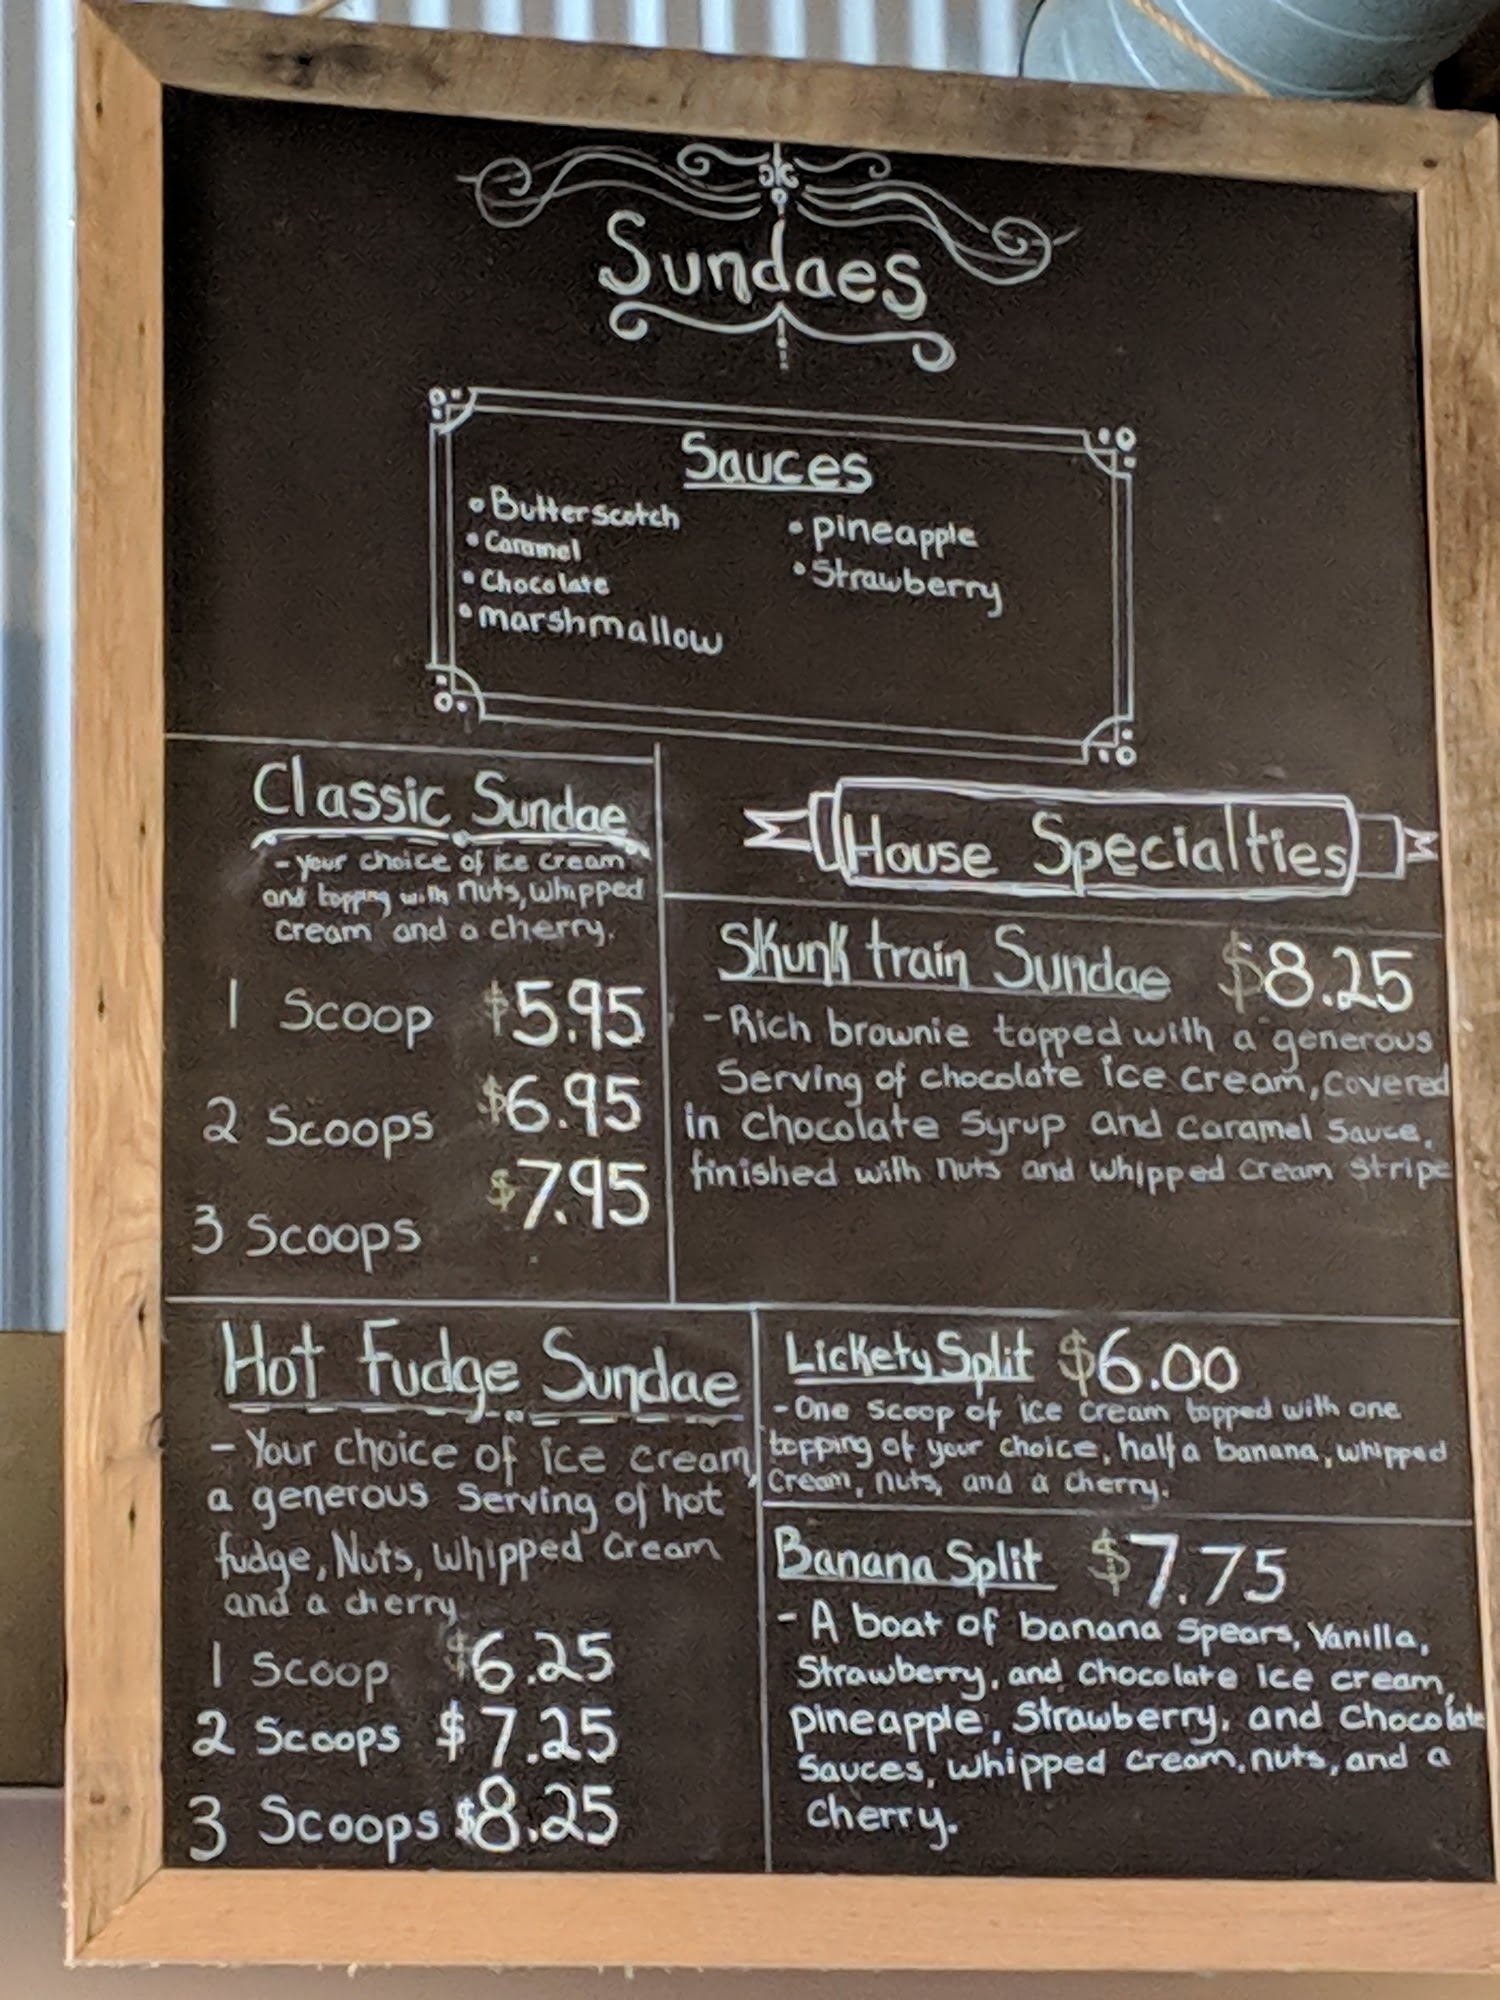 Sundaes
Sauces
• Butterscotch
• Caramel
• Chocolate
• marshmallow
• pineapple
• Strawberry
Classic Sundae
- your choice of ice cream
and topping with nuts, whipped
cream and a cherry.
1 Scoop $5.95
2 Scoops $6.95
3 Scoops $7.95
House Specialties
Skunk train Sundae $8.25
- Rich brownie topped with a generous
Serving of chocolate ice cream, covered
in chocolate syrup and caramel sauce,
finished with nuts and whipped cream stripe
Hot Fudge Sundae
- Your choice of ice cream,
a generous serving of hot
fudge, Nuts, whipped cream
and a cherry
1 Scoop $6.25
2 Scoops $7.25
3 Scoops $8.25
Lickety Split $6.00
- One scoop of ice cream topped with one
topping of your choice, half a banana, whipped
cream, nuts, and a cherry.
Banana Split $7.75
- A boat of banana spears, Vanilla,
Strawberry, and Chocolate ice cream,
pineapple, Strawberry, and Chocolate
Sauces, whipped cream, nuts, and a
cherry.